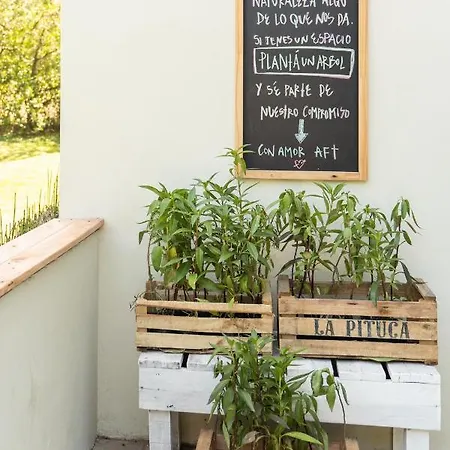 NATURALEZA ALGO
DE LO QUE NOS DA.
SI TENES UN ESPACIO
PLANTÁ UN ARBOL
Y SÉ PARTE DE
NUESTRO COMPROMISO
CON AMOR AFT
LA PITUCA